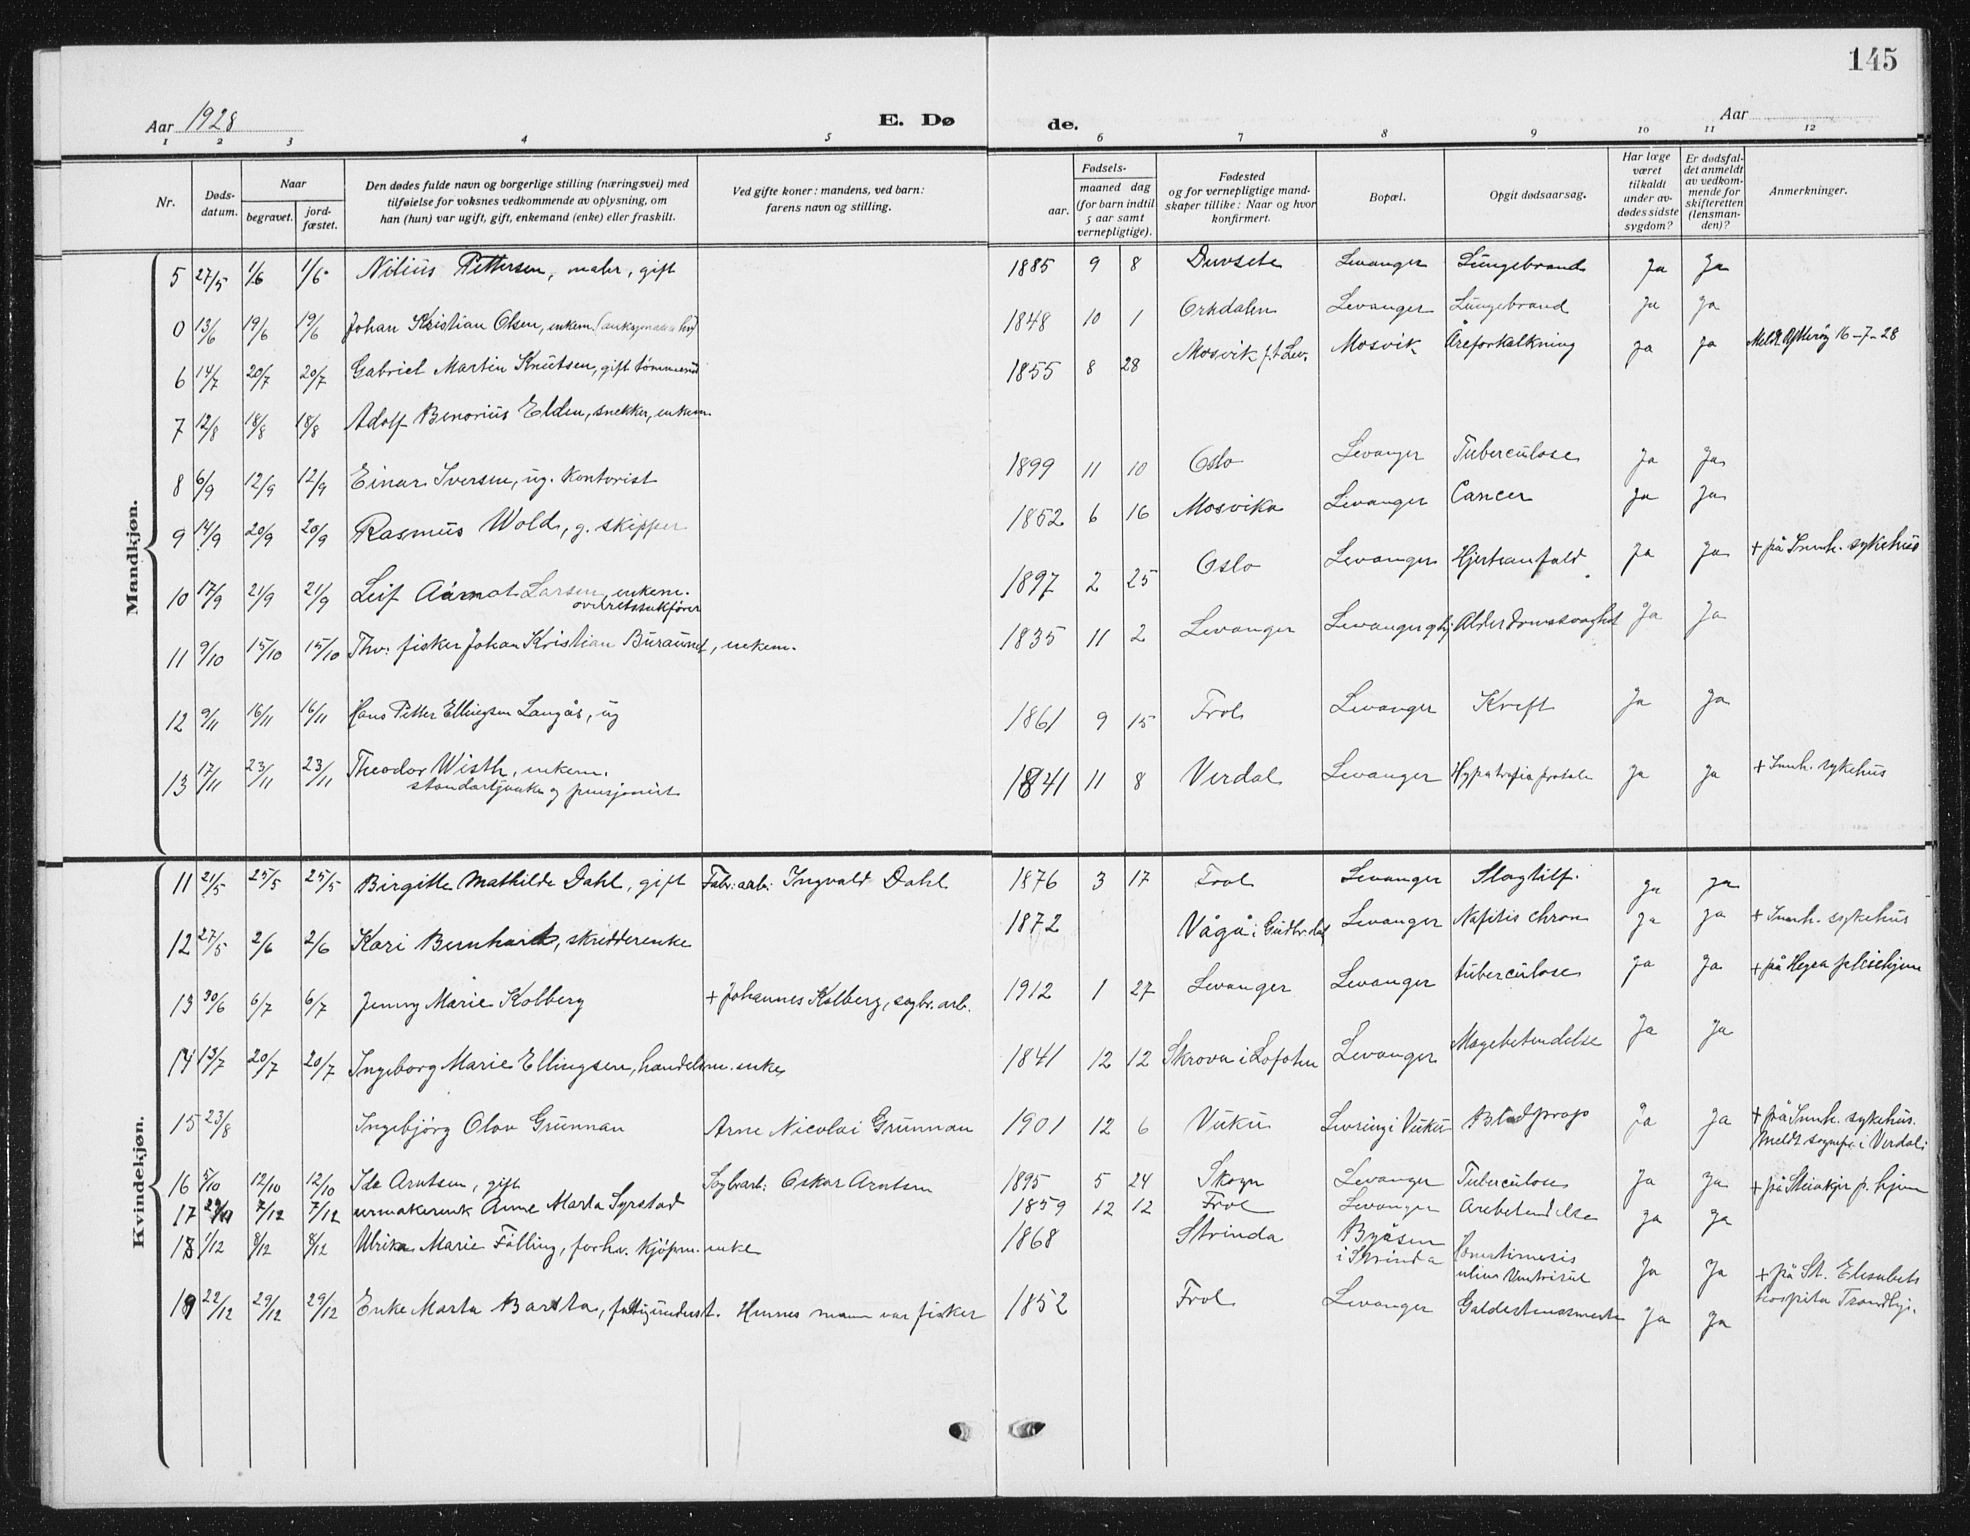 145
Aar 1928 E. Dø de. Aar
1 2 3 4 5 6 7 8 9 10 11 12
Nr. Døds-datum. Naar begravet. jord-fæstet. Den dødes fulde navn og borgerlige stilling (næringsvei) med tilføielse for voksnes vedkommende av oplysning, om han (hun) var ugift, gift, enkemand (enke) eller fraskilt. Ved gifte koner: mandens, ved barn: farens navn og stilling. Fødsels- aar. maaned dag (for barn indtil 5 aar samt vernepligtige). Fødested og for vernepligtige mandskaper tillike: Naar og hvor konfirmert. Bopæl. Opgit dødsaarsag. Har læge været tilkaldt under avdødes sidste sygdom? Er dødsfaldet anmeldt av vedkommende for skifteretten (lensmanden)? Anmerkninger.
Mandkjøn.
5 27/5 1/6 1/6 Nilius Pettersen, maler, gift 1885 9 8 Levanger Lungebrand Ja Ja
0 13/6 19/6 19/6 Johan Kristian Olsen, enkem. 1848 10 1 Orkdalen Levanger Lungebrand Ja Ja
6 14/7 20/7 20/7 Gabriel Martin Knutsen, gift 1855 8 28 Mosvik f.t. Lev. Mosvik Åreforkalkning Ja Ja Meldt 16-7-28
7 12/8 18/8 18/8 Adolf Benorius Elden, snekker, enkem.
8 6/9 12/9 12/9 Einar Iversen, ug. kontorist 1899 11 10 Oslo Levanger Tuberculose Ja Ja
9 14/9 20/9 20/9 Rasmus Wold, g. skipper 1852 6 16 Mosvika Levanger Cancer Ja Ja
10 17/9 21/9 21/9 Leif Larsen, enkem. overretssakfører 1897 2 25 Oslo Levanger Hjerteanfald Ja Ja + på Innh. sykehus
11 9/10 15/10 15/10 Fhv. fisker Johan Kristian Buraunet, enkem. 1835 11 2 Levanger Levanger Alderdomssvaghet Ja Ja
12 9/11 16/11 16/11 Hans Petter Ellingsen Langås, ug 1861 9 15 Frol Levanger Kreft Ja Ja
13 17/11 23/11 23/11 Theodor Wisth, enkem. standartjunker og pensjonist 1841 11 8 Verdal Levanger Ja Ja + Innh. sykehus
Kvindekjøn.
11 21/5 25/5 25/5 Birgitte Mathilde Dahl, gift Fabr.arb. Ingvald Dahl 1876 3 17 Frol Levanger Slagtilf. Ja Ja
12 27/5 2/6 2/6 Kari Bernhard, skredderenke 1872 Vågå i Gudbr.dal Levanger Nefitis chron Ja Ja + Innh. sykehus
13 30/6 6/7 6/7 Jenny Marie Kolberg + Johannes Kolberg, sagbr. arb. 1912 1 27 Levanger Levanger tuberculose Ja Ja + på Hegra pleiehjem
14 13/7 20/7 20/7 Ingeborg Marie Ellingsen, handelsm. enke 1841 12 12 Skrova i Lofoten Levanger Magebetendelse Ja Ja
15 23/8 Ingebjörg Olav Grunnan Arne Nicolai Grunnan 1901 12 6 Vuku Levring i Vuku Blodprop Ja Ja + på Innh. sykehus. Meldt sognepr. i Verdal
16 5/10 12/10 12/10 Ida Arntsen, gift Sagbr.arb. Oskar Arntsen 1895 5 24 Skogn Levanger Tuberculose Ja Ja + på Steinkjer p. hjem
17 7/12 7/12 urmakerenk Anne Marta Syrstad 1859 12 12 Frol Levanger Arebetendelse Ja Ja
18 1/12 8/12 8/12 Ulrika Marie Fölling, forhv. kjöpm. enke 1868 Strinda Byåsen i Strinda Hematimesis Ja Ja + på St. Elisabets hospita Trondhj.
19 22/12 29/12 29/12 Enke Marta Barsta, fattigunderst. Hennes mann var fisker 1852 Frol Levanger Ja Ja